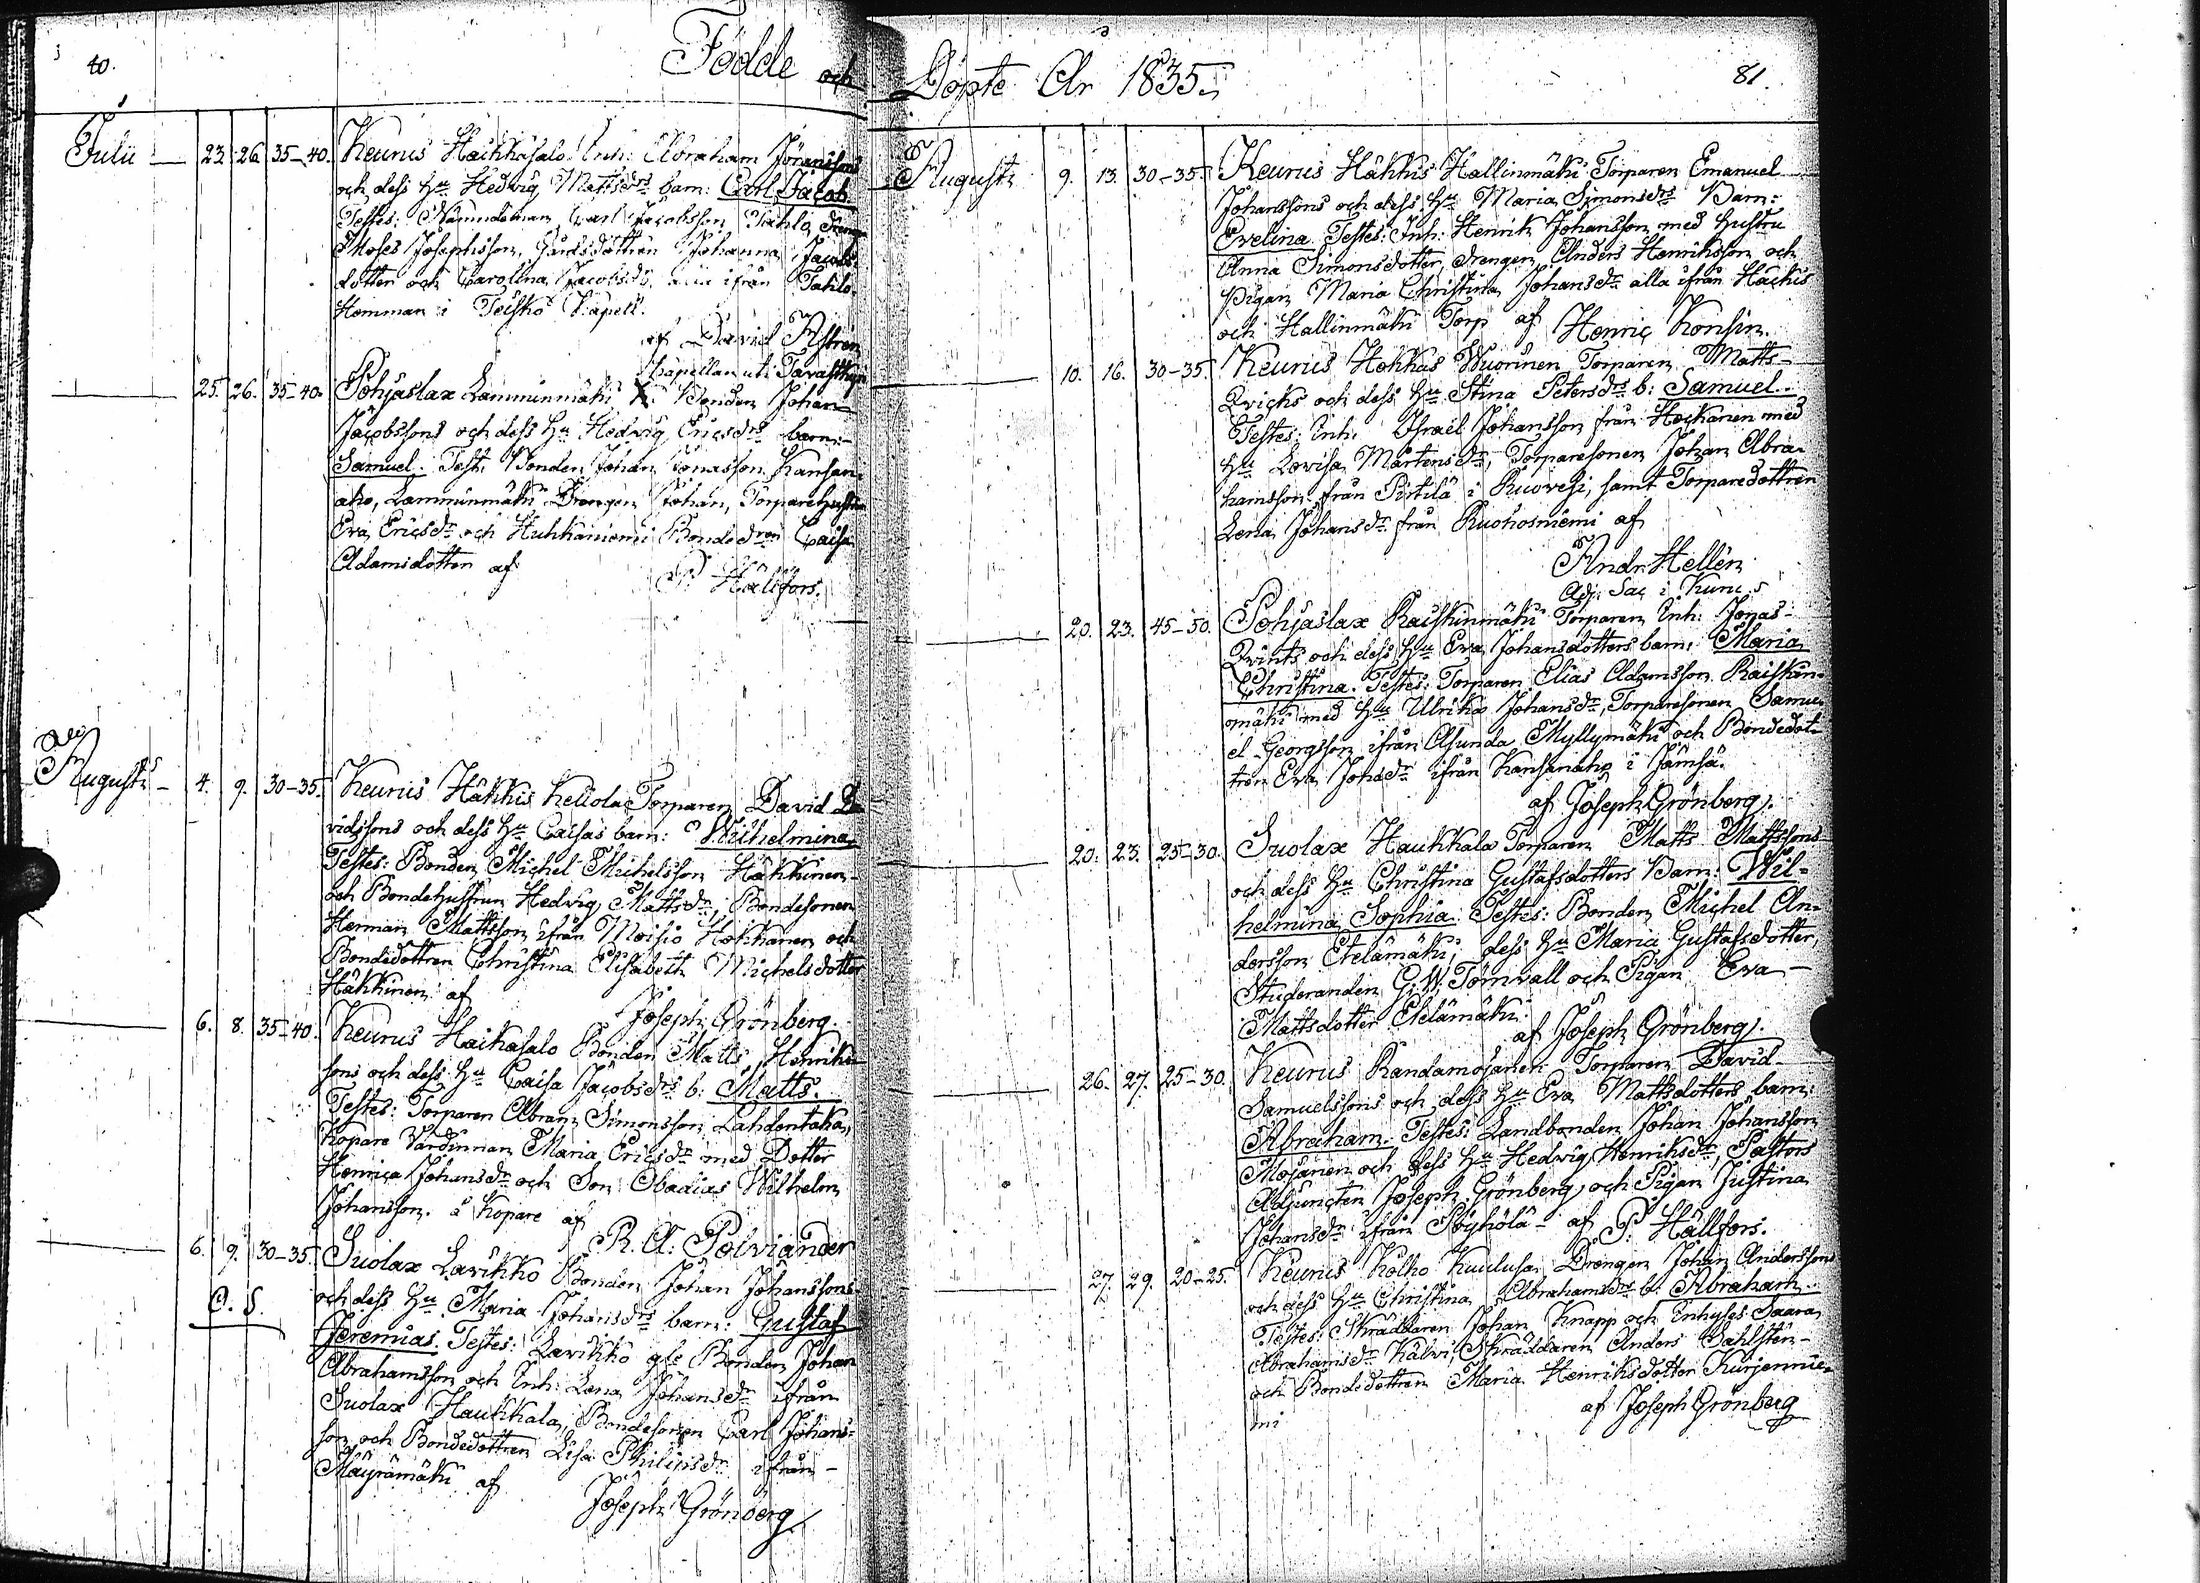 40.
Födde och
Julii 23. 26. 35-40. Keurus Haikkasalo Inh: Abraham Göranssons
och dess Hu Hedvig Mattsdrs barn: Carl Jacob.
Testes: Nämndeman Carl Jacobsson Tahlo, Drengen
Moses Josephsson, Gårdsdottren Johanna Jacobs
dotter och Carolina Jacobsdr alla ifrån Tahlo
Hemman i Teisko Capell.
af David
Capellan uti
25. 26. 35-40. Pohjaslax Lamminmäki Bonden Johan
Jacobssons och dess Hu Hedvig Ericsdrs barn:
Samuel. Test: Bonden Johan Jonasson Kansan-
aho, Lamminmäki Drengen Johan, Torparehustrun
Eva Ericsdr och Huhkaniemi Bondedren Caisa
Adamsdotter af
P. Hällfors.
Augusti 4. 9. 30-35. Keurus Häkkis Keliola Torparen David Da-
vidssons och dess Hu Caisas barn: Wilhelmina
Testes: Bonden Michel Michelsson Häkkinen
och Bondehustrun Hedvig Mattsdr, Bondesonen
Herman Mattsson ifrån Moisio Hokkanen och
Bondedottren Christina Elisabeth Michelsdotter
Häkkinen af
Joseph Grönberg.
6. 8. 35-40. Keurus Haikasalo Bonden Matts Henriks-
sons och dess Hu Caisa Jacobsdrs b: Matts.
Testes: Torparen Abram Simonsson Lahdentaka,
Kopare Värdinnan Maria Ericsdr med Dotter
Henrica Johansdr och Son Obadias Wilhelm
Johansson å Kopare af
R. A: Polviander
6. 9. 30-35. Suolax Lavikko Bonden Johan Johanssons
och dess Hu Maria Johansdrs barn: Gustaf
O. S.
Jeremias. Testes: Lavikko gle Bonden Johan
Abrahamsson och Inh: Lena Johansdr ifrån
Suolax Haukkala, Bondesonen Carl Johans-
son och Bondedottren Lisa Philipsdr ifrån
Mäyrämäki af
Joseph Grönberg
Döpte År 1835.
81.
Augusti 9. 13. 30-35. Keurus Häkkis Hallinmäki Torparen Emanuel
Johanssons och dess Hu Maria Simonsdrs Barn:
Evelina. Testes: Inh: Henrik Johansson med hustru
Anna Simonsdotter, drengen Anders Henriksson och
Pigan Maria Christina Johansdr alla ifrån Häckis
och Hallinmäki Torp af Henric Konsin.
10. 16. 30-35. Keurus Hokkas Wuorinen Torparen Matts
Qvicks och dess Hu Stina Petersdrs b: Samuel.
Testes: Inh. Israel Johansson från Hockanen med
Hu Lovisa Mårtensdr, Torparesonen Johan Abra-
hamsson från Pirtilä i Ruovesi, samt Torparedottren
Lena Johansdr från Ruohosniemi af
Andr. Hellén
Adj. Sac. i
20. 23. 45-50. Pohjaslax Raiskinmäki Torparen Inh: Jonas
Qvints och dess Hu Eva Johansdotters barn: Maria
Christina. Testes: Torparen Elias Adamsson Raiskin-
mäki med Hu Ulrika Johansdr, Torparesonen Samu-
el Georgsson ifrån Asunda Myllymäki och Bondedot-
tren Eva Johsdr ifrån Kansanaho i Jämsä.
af Joseph Grönberg.
20. 23. 25-30. Suolax Haukkala Torparen Matts Mattssons
och dess Hu Christina Gustafsdotters Barn: Wil-
helmina Sophia. Testes: Bonden Michel An-
dersson Etelämäki, dess Hu Maria Gustafsdotter,
Studeranden G. W. Törnvall och Pigan Eva
Mattsdotter Etelämäki
af Joseph Grönberg.
26. 27. 25-30. Keurus Randamojanen Torparen David
Samuelssons och dess Hu Eva Mattsdotters barn:
Abraham. Testes: Landbonden Johan Johansson
Mojanen och dess Hu Hedvig Henriksdr, Pastors
Adjuncten Joseph Grönberg och Pigan Justina
Johansdr ifrån Pöyhölä af P. Hällfors.
27. 29. 20-25. Keurus Kolho Drengen Johan Anderssons
och dess Hu Christina Abrahamsdrs b: Abraham.
Testes: Skräddaren Johan Knapp och Inhyses Saara
Abrahamsdr Kalvi, Skräddaren Anders Dahlstén
och Bondedottren Maria Henriksdotter Kurjennie-
mi
af Joseph Grönberg